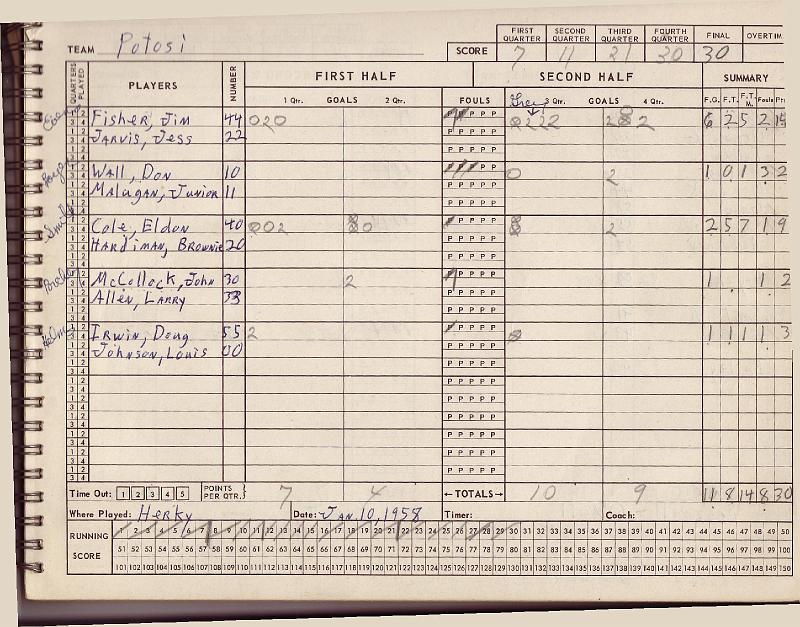 TEAM Potosi
FIRST QUARTER SECOND QUARTER THIRD QUARTER FOURTH QUARTER FINAL OVERTIM
SCORE 7 11 21 30 30
QUARTERS PLAYED PLAYERS NUMBER FIRST HALF SECOND HALF SUMMARY
1 Qtr. GOALS 2 Qtr. FOULS 3 Qtr. GOALS 4 Qtr. F.G. F.T. F.T. M. Fouls Pts
Fisher, Jim 44 020 P P P P P 2 6 2 5 2 14
Jarvis, Jess 22
Wall, Don 10 0 2 1 0 1 3 2
Malugan, Junior 11
Cole, Eldon 40 002 0 2 2 5 7 1 9
Hardiman, Brownie 20
McCollock, John 30 2 1 1 2
Allen, Larry 33
Irwin, Doug 55 2 1 1 1 1 3
Johnson, Louis 00
Time Out: 1 2 3 4 5 POINTS PER QTR. 7 4 ←TOTALS→ 10 9 11 8 14 8 30
Where Played: Herky Date: Jan 10, 1958 Timer: Coach:
RUNNING SCORE
1 2 3 4 5 6 7 8 9 10 11 12 13 14 15 16 17 18 19 20 21 22 23 24 25 26 27 28 29 30 31 32 33 34 35 36 37 38 39 40 41 42 43 44 45 46 47 48 49 50
51 52 53 54 55 56 57 58 59 60 61 62 63 64 65 66 67 68 69 70 71 72 73 74 75 76 77 78 79 80 81 82 83 84 85 86 87 88 89 90 91 92 93 94 95 96 97 98 99 100
101 102 103 104 105 106 107 108 109 110 111 112 113 114 115 116 117 118 119 120 121 122 123 124 125 126 127 128 129 130 131 132 133 134 135 136 137 138 139 140 141 142 143 144 145 146 147 148 149 150